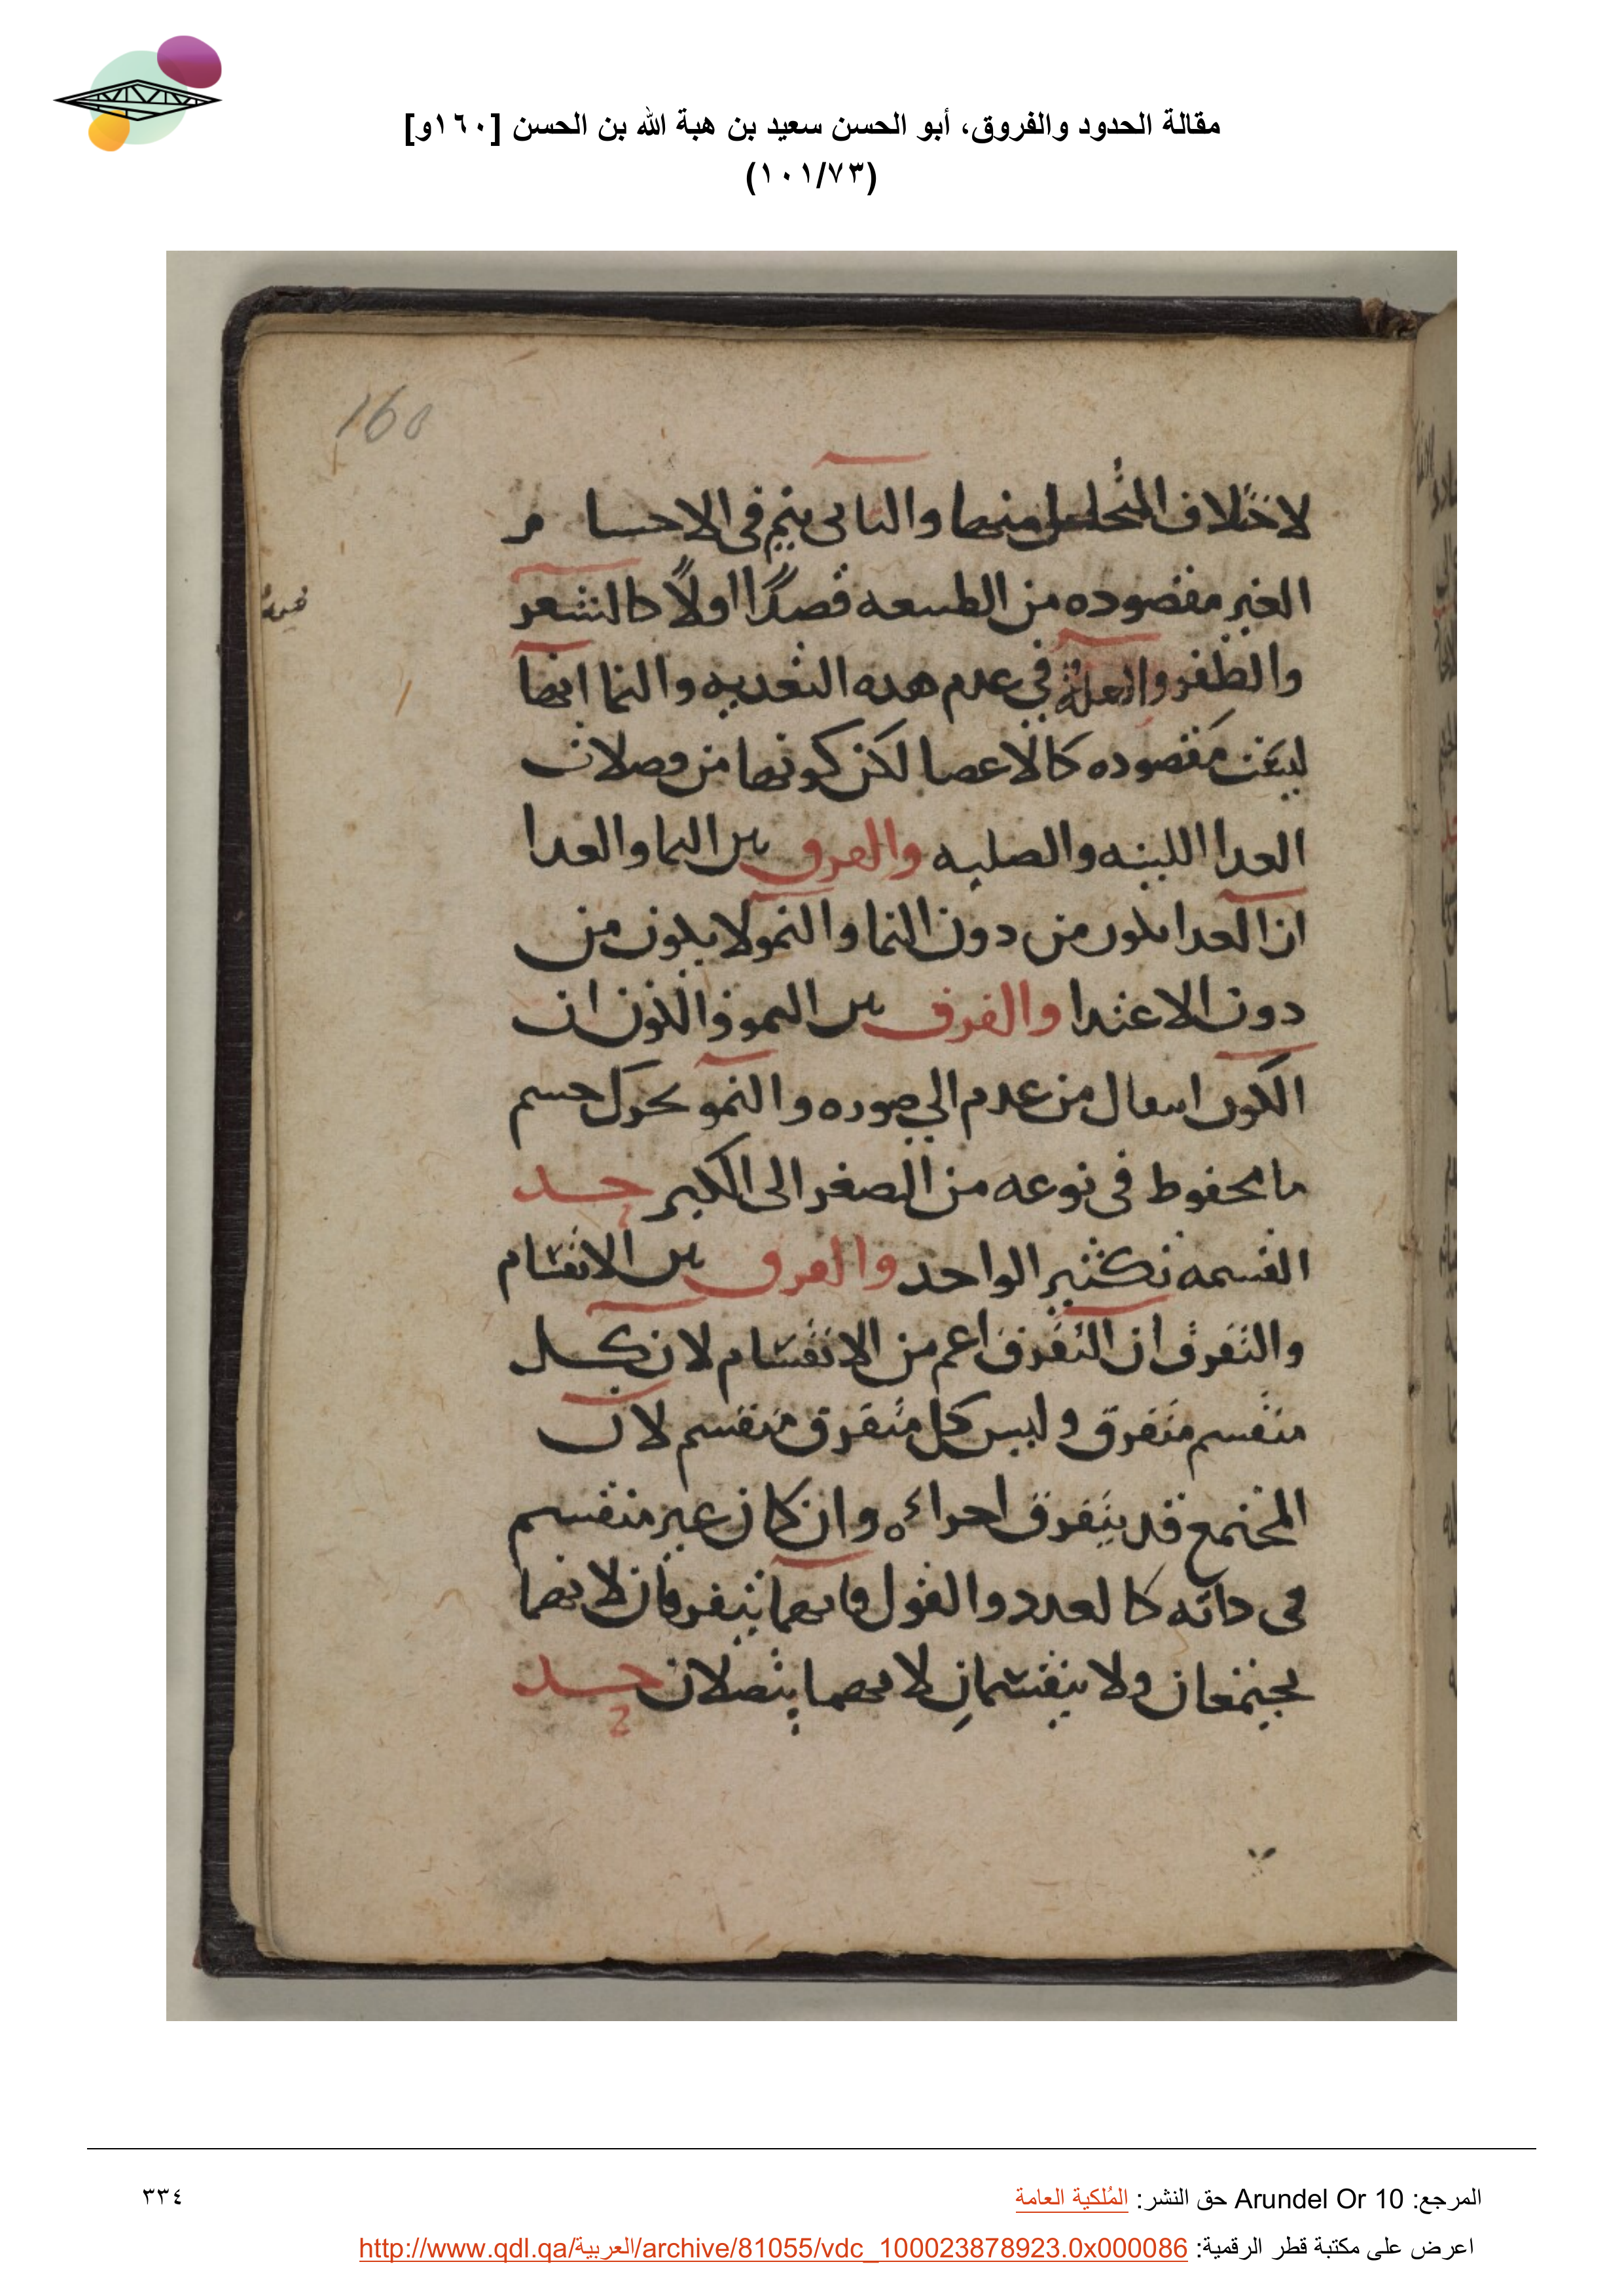 مقالة الحدود والفروق، أبو الحسن سعيد بن هبة الله بن الحسن [١٦٠و]
(١٠١/٧٣)
160
لاختلاف المتحلل منها والثانى يتم فى الاحسا م
الغير مقصوده من الطبيعه قصدًا اولًا كالشعر
والظفر والعلة في عدم هده التغديه والنما انها
ليست مقصوده كالاعضا لكن كونها من فضلات
الغدا اللينه والصلبه والفرق بين النما والغدا
ان الغدا يكون من دون النما والنمو لا يكون من
دون الاغتدا والفرق بين النمو والكون ان
الكون انتقال من عدم الى صوره والنمو تحرك جسم
ما محفوظ فى نوعه من الصغر الى الكبر حد
القسمه تكثير الواحد والفرق بين الانقسام
والتفرق ان التفرق اعم من الانقسام لان كل
منقسم متفرق وليس كل متفرق منقسم لان
المجتمع قد يتفرق اجزاءه وان كان غير منقسم
فى داته كالعدد والقول فانهما يتفرقان لانهما
يجتمعان ولا ينقسمان لانهما يتصلان حد
المرجع: Arundel Or 10 حق النشر: المُلكية العامة
٣٣٤
اعرض على مكتبة قطر الرقمية: http://www.qdl.qa/العربية/archive/81055/vdc_100023878923.0x000086